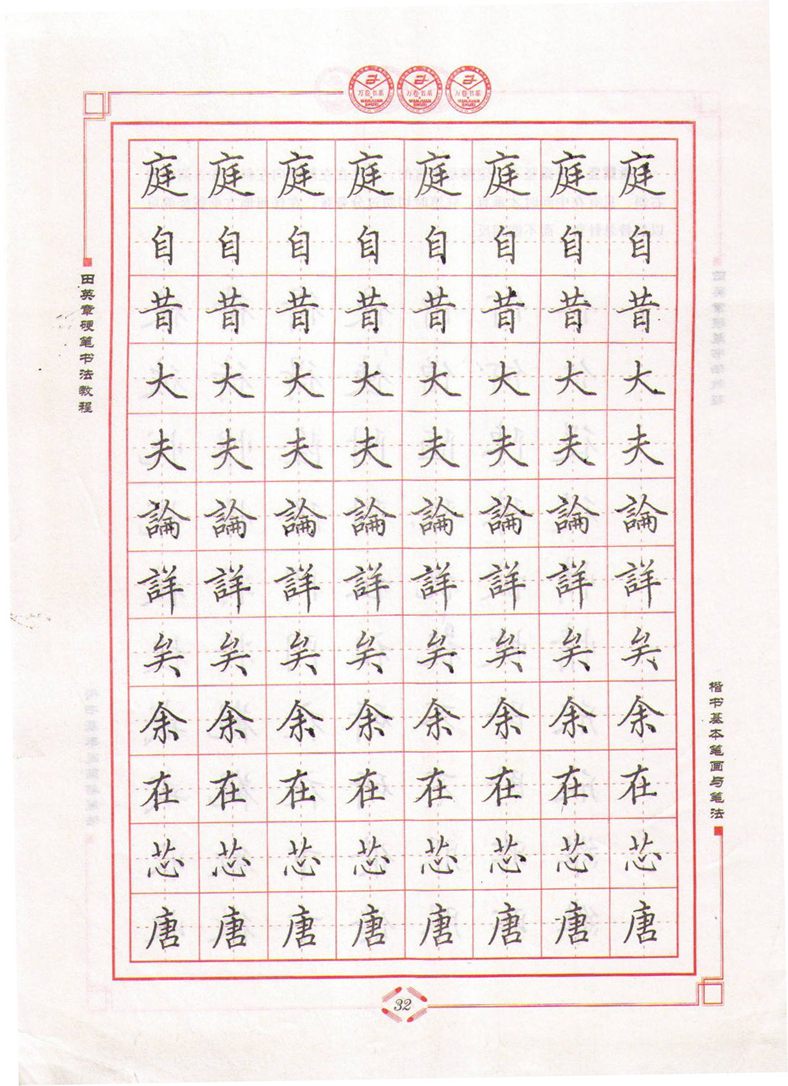 万卷书系 万卷书系 万卷书系
WANJUAN SHUXI WANJUAN SHUXI WANJUAN SHUXI
田英章硬笔书法教程
庭庭庭庭庭庭庭庭
自自自自自自自自
昔昔昔昔昔昔昔昔
大大大大大大大大
夫夫夫夫夫夫夫夫
論論論論論論論論
詳詳詳詳詳詳詳詳
矣矣矣矣矣矣矣矣
余余余余余余余余
在在在在在在在在
芯芯芯芯芯芯芯芯
唐唐唐唐唐唐唐唐
楷书基本笔画与笔法
32